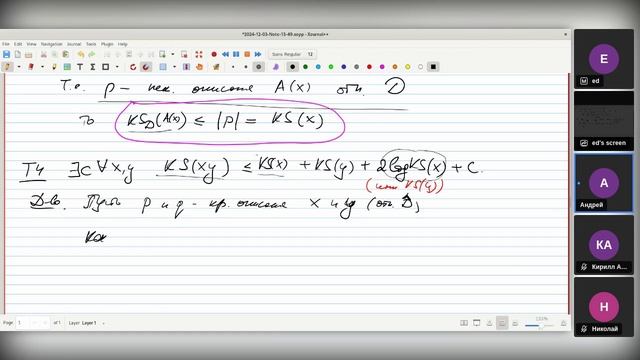 *2024-12-03-Note-15-49.xopp - Xournal++
File Edit View Navigation Journal Tools Plugin Help
Sans Regular 12
Т.е. p – описание A(x) отн. D
то KS_D(A(x)) ≤ |p| = KS(x)
T4 ∃C ∀x,y KS(xy) ≤ KS(x) + KS(y) + 2log KS(x) + C.
(или KS(y))
Д-во. Пусть p и q – кр. описания x и y (отн. D)
Как
Page 1 of 1 Layer Layer 1
E
ed
ed's screen
A
Андрей
KA
Кирилл А...
H
Николай